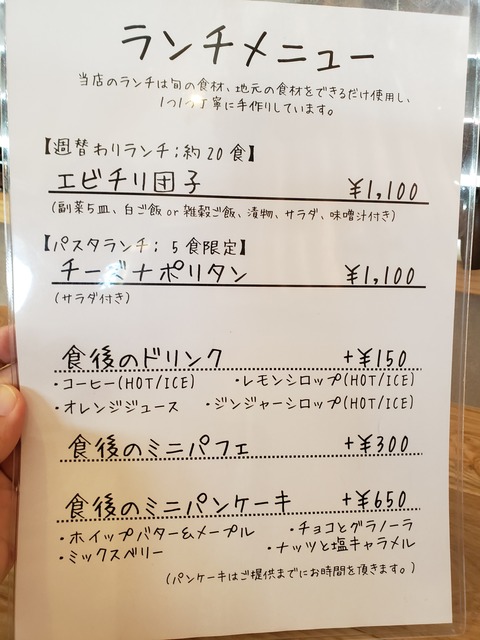 ランチメニュー
当店のランチは旬の食材、地元の食材をできるだけ使用し、
1つ1つ丁寧に手作りしています。
【週替わりランチ；約20食】
エビチリ団子 ¥1,100
(副菜5皿、白ご飯or雑穀ご飯、漬物、サラダ、味噌汁付き)
【パスタランチ；5食限定】
チーズナポリタン ¥1,100
(サラダ付き)
食後のドリンク +¥150
・コーヒー(HOT/ICE) ・レモンシロップ(HOT/ICE)
・オレンジジュース ・ジンジャーシロップ(HOT/ICE)
食後のミニパフェ +¥300
食後のミニパンケーキ +¥650
・ホイップバター&メープル ・チョコとグラノーラ
・ミックスベリー ・ナッツと塩キャラメル
(パンケーキはご提供までにお時間を頂きます。)